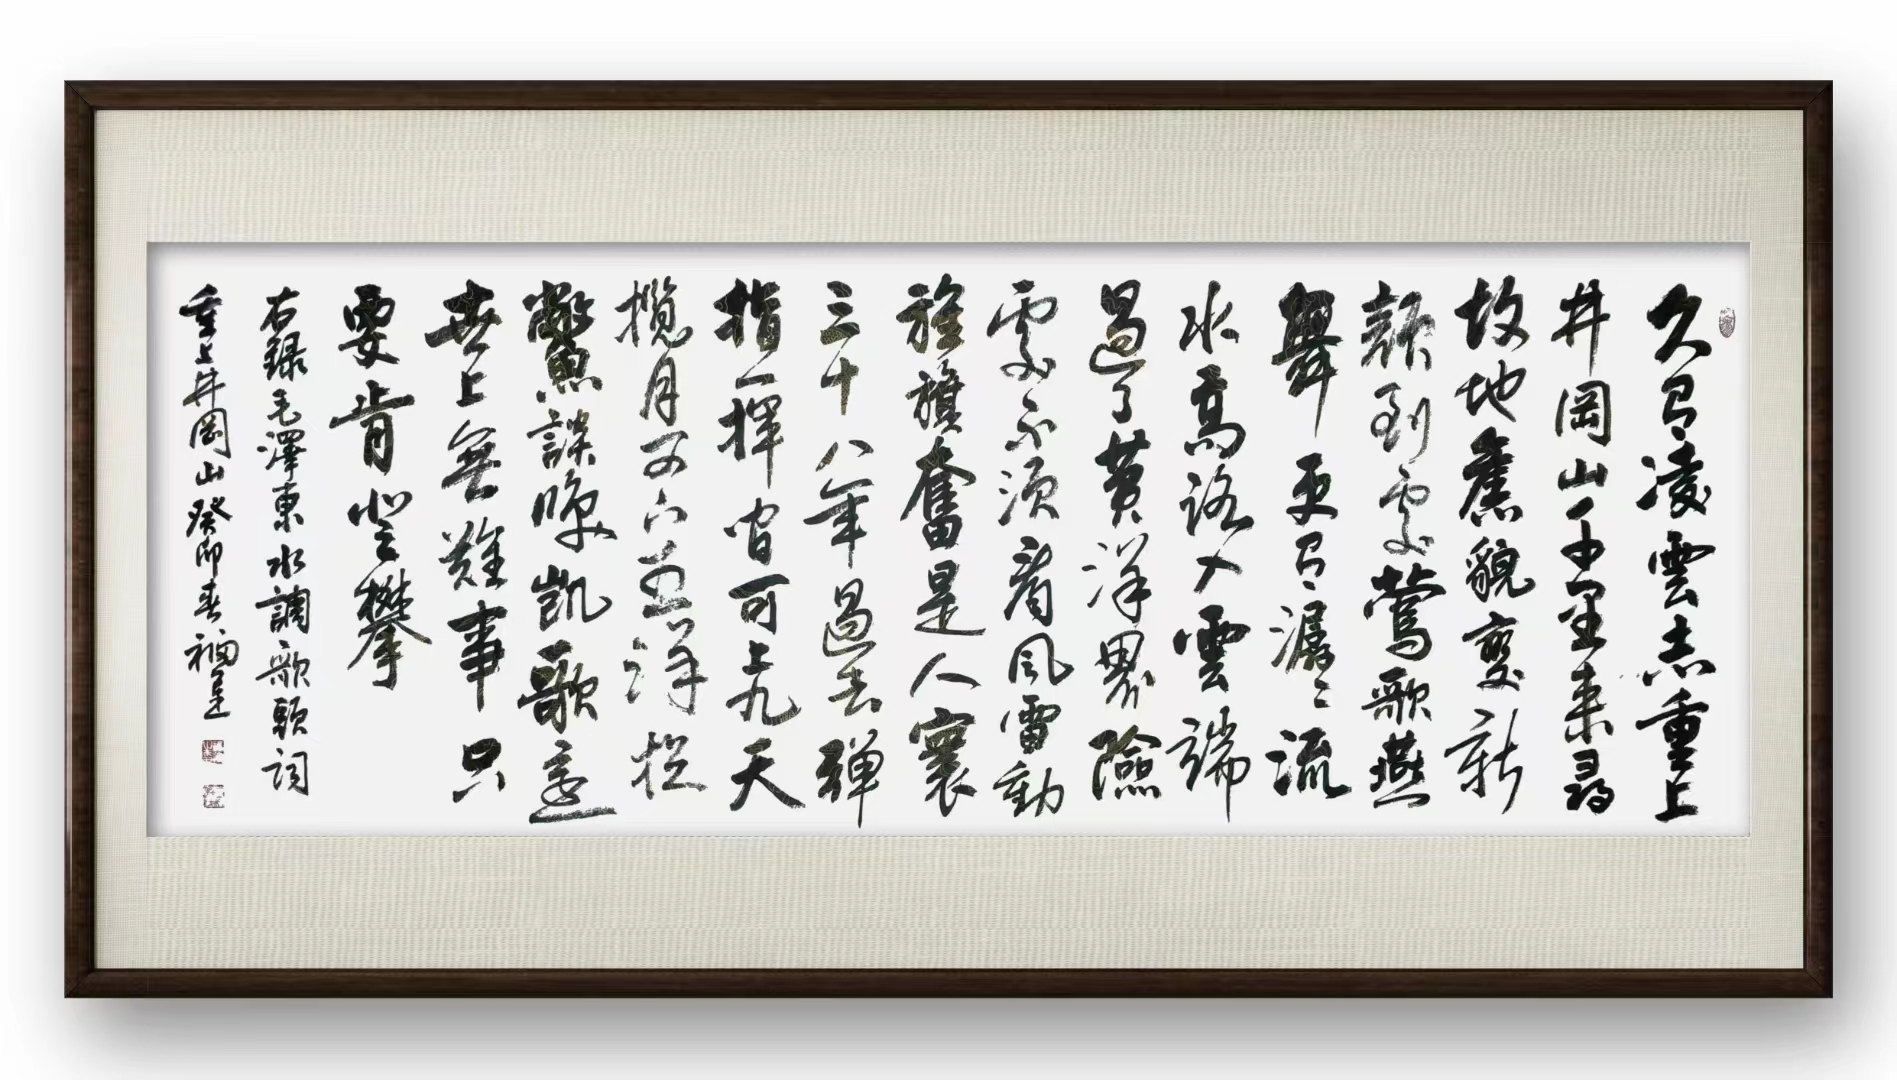 久有凌雲志重上
井岡山千里来尋
故地舊貌變新
顏到處鶯歌燕
舞更有潺〻流
水高路入雲端
過了黄洋界險
處不須看風雷動
旌旗奮是人寰
三十八年過去彈
指一揮間可上九天
攬月可下五洋捉
鱉談笑凱歌還
世上無難事只
要肯登攀
右録毛澤東水調歌頭詞
重上井岡山癸卯春福